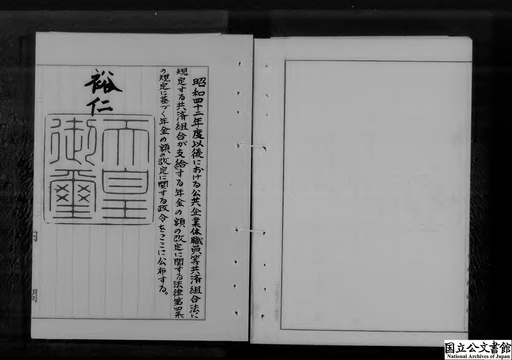 昭和四十二年度以後における公共企業体職員等共済組合法に
規定する共済組合が支給する年金の額の改定に関する法律第四条
の規定に基づく年金の額の改定に関する政令をここに公布する。
裕仁
天皇
御璽
内閣
国立公文書館
National Archives of Japan